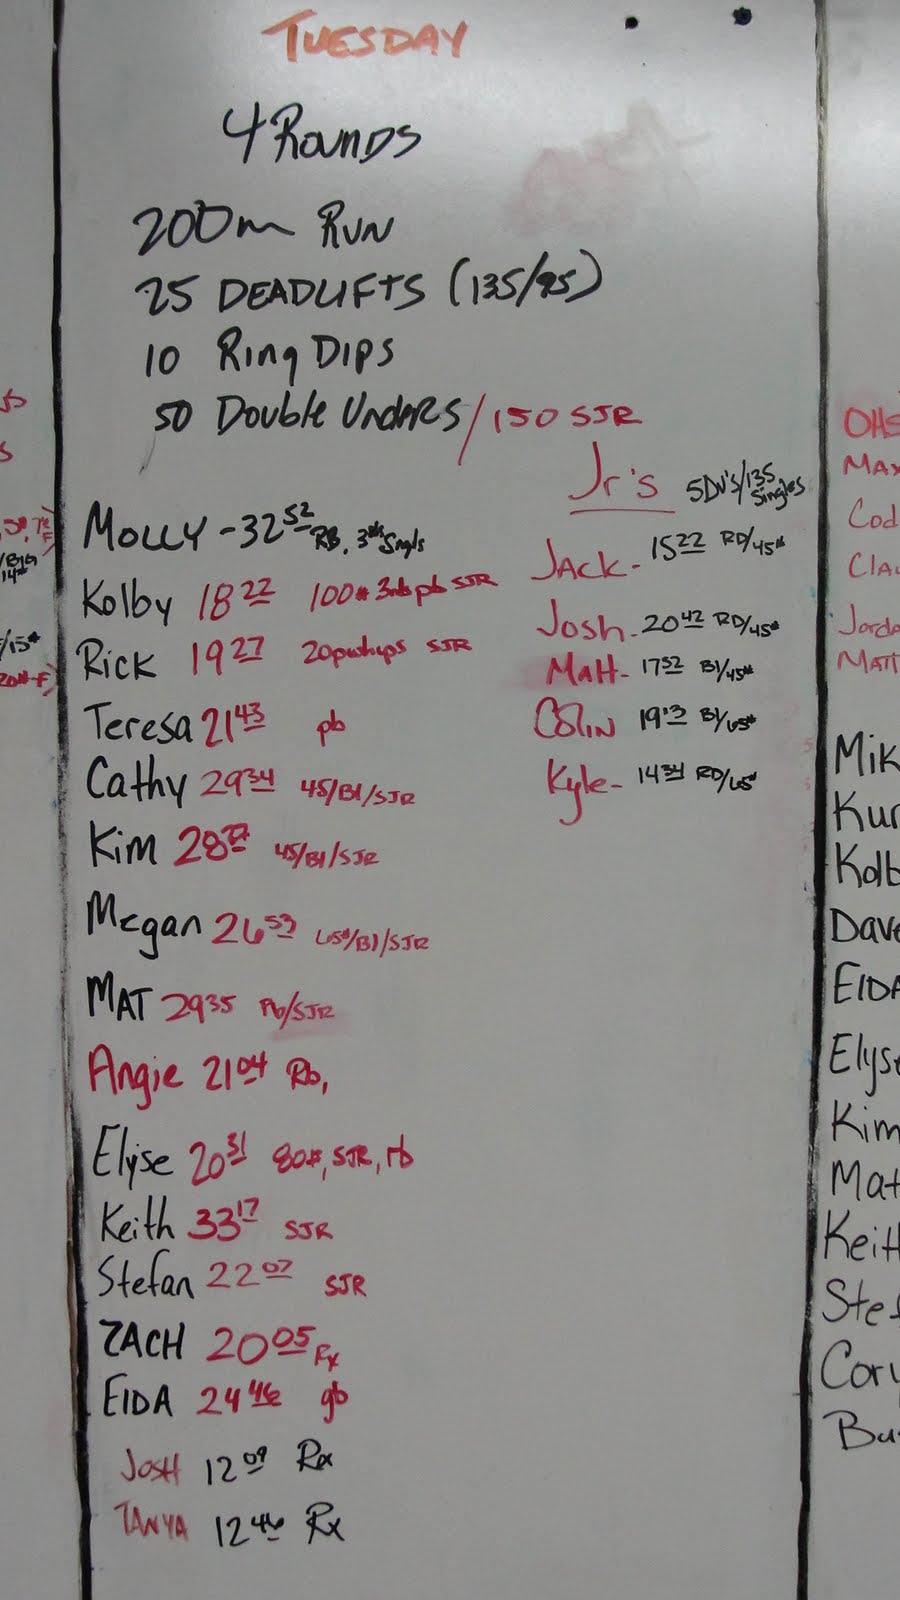 TUESDAY
4 ROUNDS
200m RUN
25 DEADLIFTS (135/95)
10 Ring Dips
50 Double Unders/150 SJR
Jr's 5DU's/135 Singles
MOLLY - 32 52 RB, Sngls
Kolby 18 22 100# pb SJR
Rick 19 27 20pushups SJR
Teresa 21 43 pb
Cathy 29 34 45/B1/SJR
Kim 28 45/B1/SJR
Megan 26 53 65#/B1/SJR
MAT 29 35 Pb/SJR
Angie 21 04 Rb,
Elyse 20 31 80#, SJR, rb
Keith 33 17 SJR
Stefan 22 07 SJR
ZACH 20 05 Rx
EIDA 24 46 gb
Josh 12 09 Rx
TANYA 12 46 Rx
JACK - 15 22 RD/45#
Josh - 20 42 RD/45#
Matt - 17 52 B1/45#
Colin 19 13 B1/65#
Kyle - 14 34 RD/65#
OHS
MAX
Cod
Clau
Jorda
MATT
Mik
Kur
Kolb
Dave
EIDA
Elyse
Kim
Mat
Keith
Stef
Cory